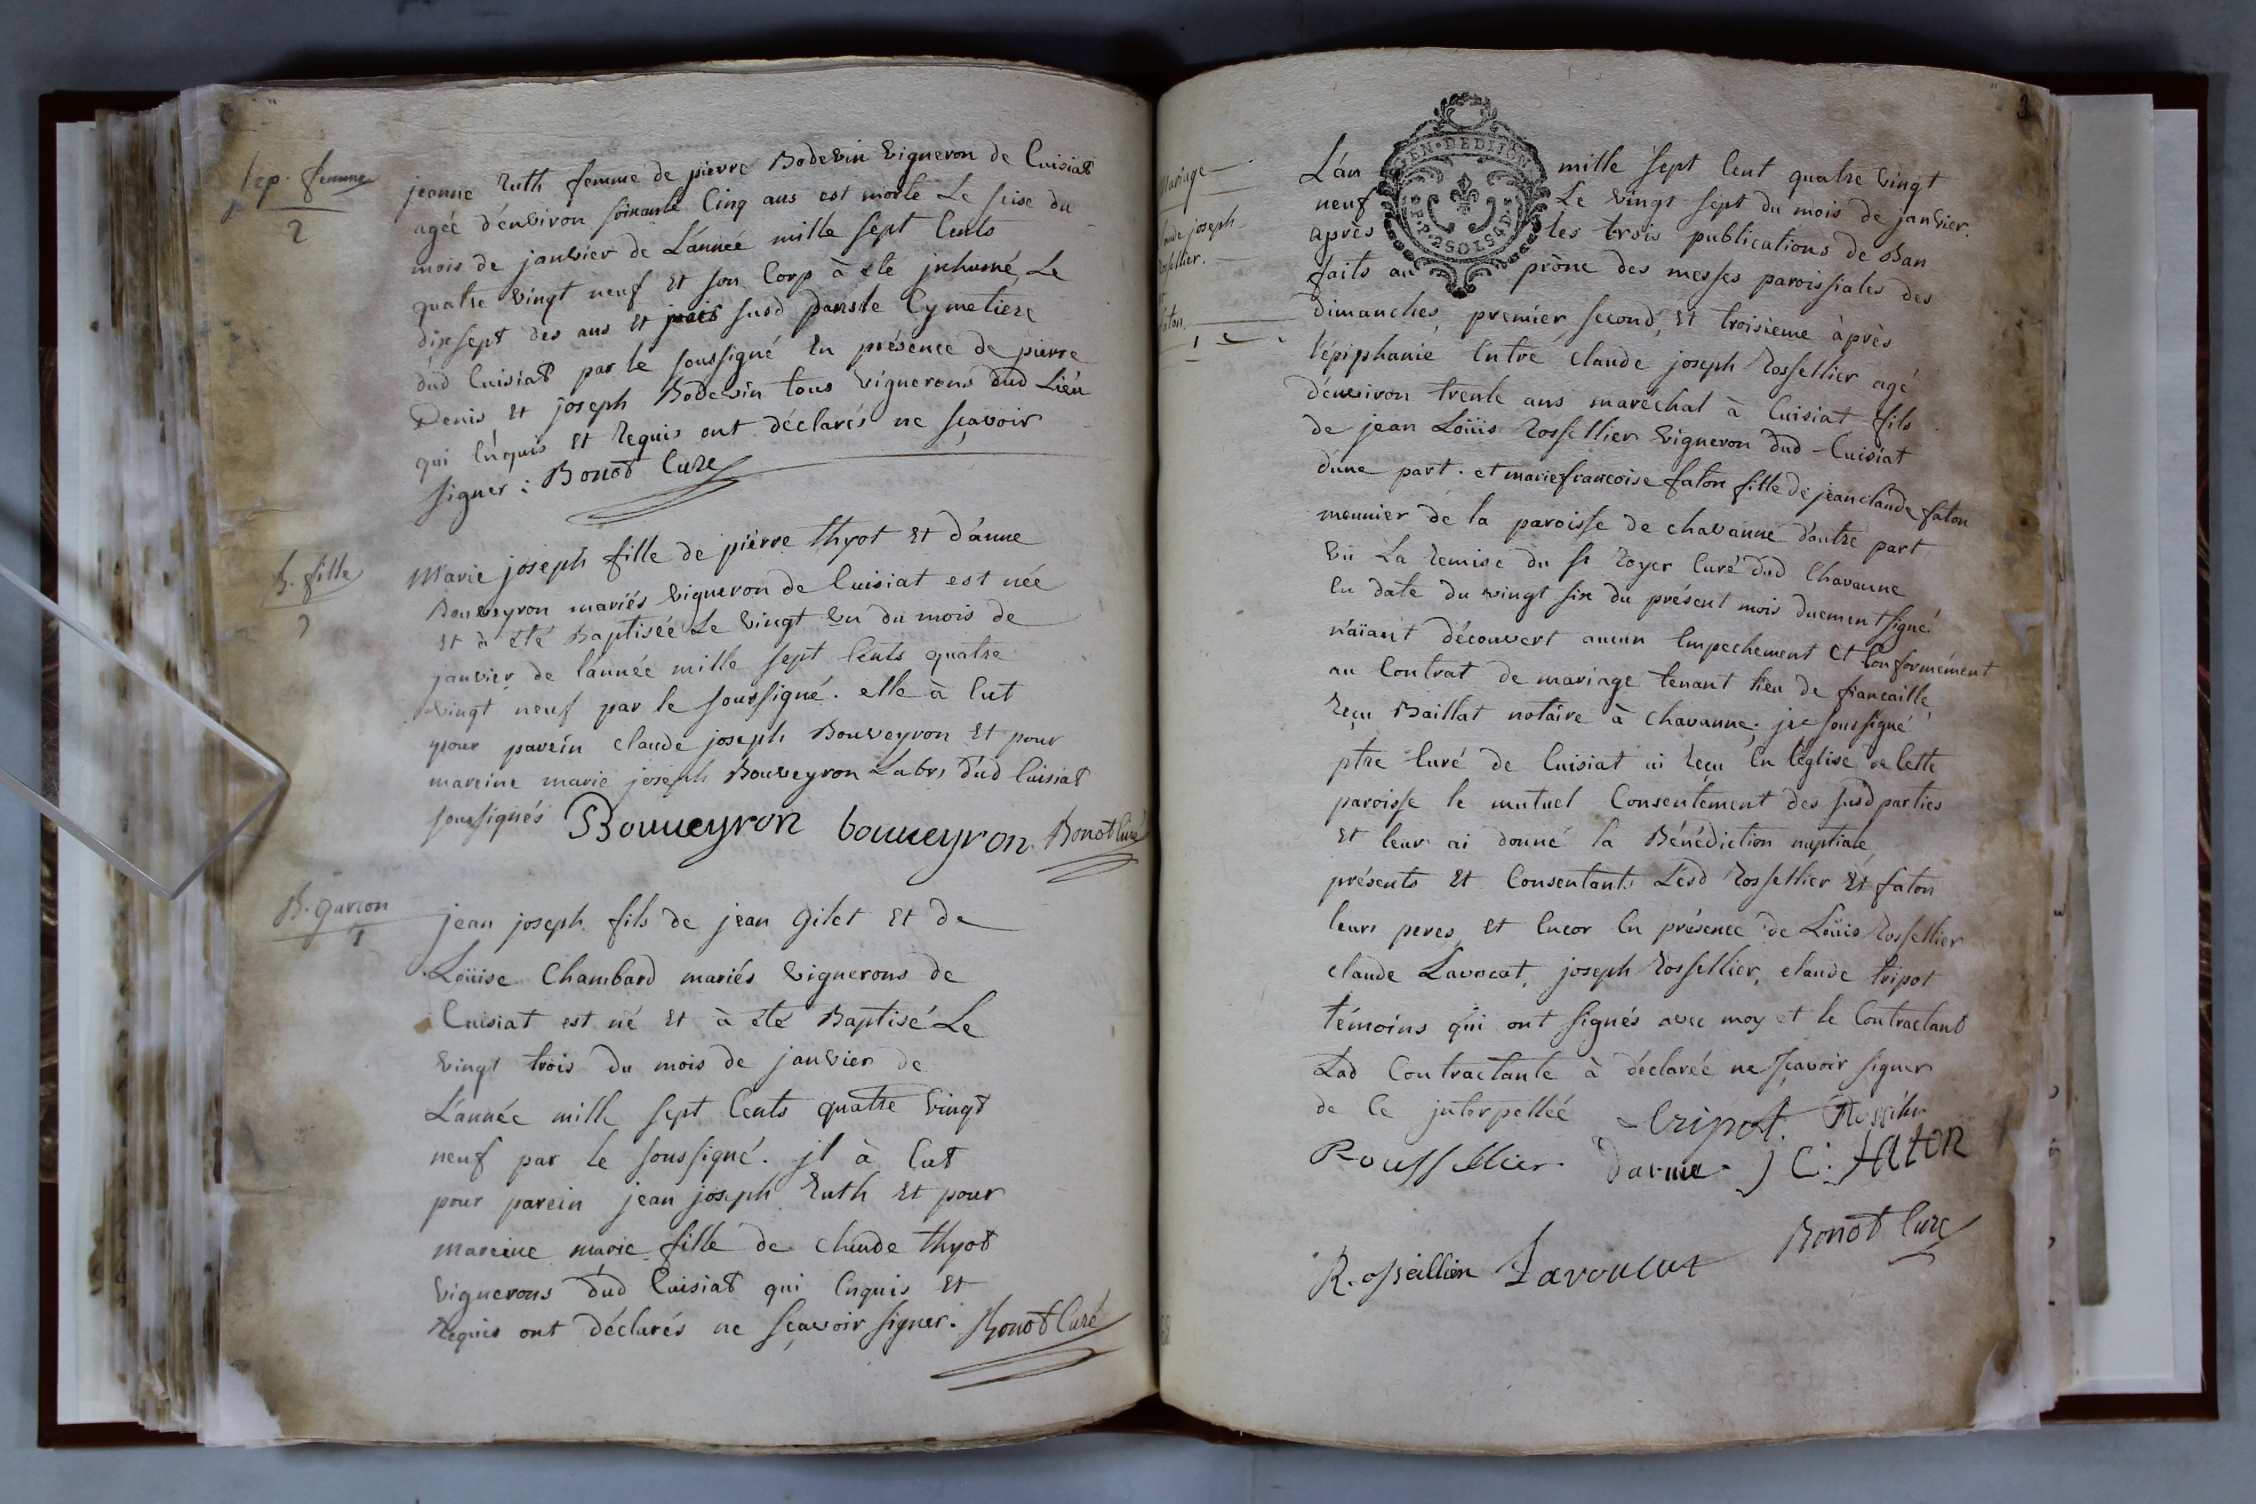 Sep. femme
2
jeanne Ruth femme de pierre Bodevin vigneron de Cuisiat
agéé d'énviron soixante Cinq ans est morte Le seise du
mois de janvier de L'année mille sept Cents
quatre vingt neuf Et son Corp à été jnhumé Le
dixsept des ans et mois susd dans le Cymetiere
dud Cuisiat par le soussigné En présence de pierre
Denis Et joseph Bodevin tous vignerons dud Liéu
qui Enquis Et Requis ont déclarés ne sçavoir
signer : Bonot Curé
B. fille
Marie joseph fille de pierre thyot Et d'anne
Bouveyron mariés vigneron de Cuisiat est née
Et à été Baptisée Le vingt un du mois de
janvier de l'année mille sept Cents quatre
vingt neuf par le soussigné. elle à Eut
pour parein claude joseph Bouveyron Et pour
mareine marie joseph Bouveyron dud Cuisiat
soussignés Bouueyron bouueyron Bonot Curé
B. garcon
1
jean joseph fils de jean Gilet Et de
Loüise Chambard mariés vignerons de
Cuisiat est né Et à été Baptisé Le
vingt trois du mois de janvier de
L'année mille sept Cents quatre vingt
neuf par le soussigné. jl à Eut
pour parein jean joseph Ruth Et pour
mareine marie fille de claude thyot
vignerons dud Cuisiat qui Enquis Et
Requis ont déclarés ne sçavoir signer. Bonot Curé
Mariage
claude joseph
Rossellier.
et
faton
1
L'án mille sept Cent quatre vingt
neuf Le vingt sept du mois de janvier.
après les trois publications de Ban
faits au prône des messes paroissiales des
dimanches premiér second, Et troisieme àprès
l'épiphanie Entre Claude joseph Rossellier agé
d'énviron trente ans maréchal à Cuisiat fils
de jean Loüis Rossellier vigneron dud Cuisiat
d'une part. et marie francoise faton fille de jean claude faton
meunier de la paroisse de chavanne d'autre part
vû La Remise du sr Royer Curé dud Chavanne
En date du vingt six du présent mois duement signé.
n'aïant découvert aucun Empechement Et Conformément
au Contrat de mariage tenant lieu de fiancaille
Reçu Baillat notaire à Chavanne. je soussigné
ptre Curé de Cuisiat ai Reçu En l'église de Cette
paroisse le mutuel Consentement des susd parties
Et leur ai donné la Bénédiction nuptiale
présents Et Consentants Lesd Rossellier Et faton
leurs peres Et Encor En présence de Loüis Rossellier
claude Lavocat, joseph Rossellier, claude tripot
témoins qui ont signés avec moy et le Contractant
Lad Contractante à déclaréé ne sçavoir signer
de Ce jnterpelléé tripot.
Rousselier. J C. fAtON
Rosseillier Lavoucat Bonot Curé